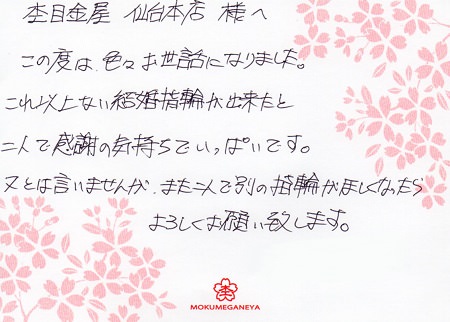 杢目金屋 仙台本店 様へ
この度は、色々お世話になりました。
これ以上ない結婚指輪が出来たと
二人で感謝の気持ちでいっぱいです。
又とは言いませんが、また二人で別の指輪がほしくなったら
よろしくお願い致します。
杢
MOKUMEGANEYA